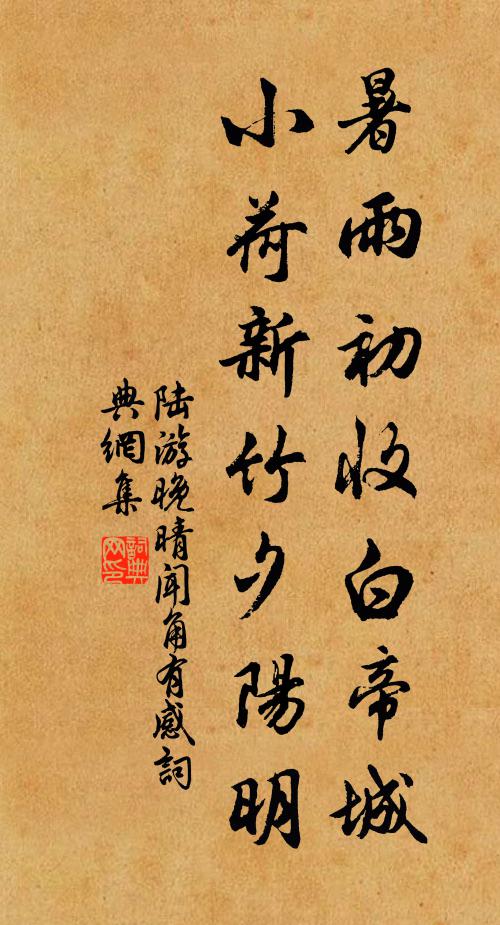 暑雨初收白帝城
小荷新竹夕陽明
陆游晚晴闻角有感詞
典網集
詞典網印